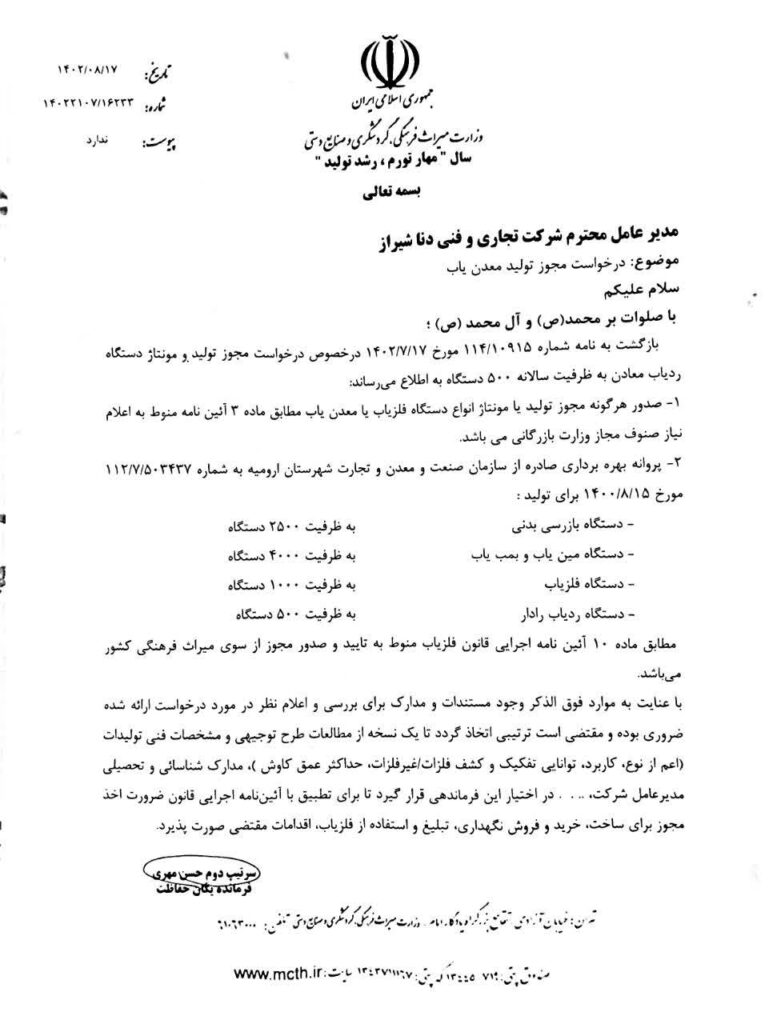 جمهوری اسلامی ایران
وزارت میراث فرهنگی، گردشگری و صنایع دستی
سال " مهار تورم ، رشد تولید "
بسمه تعالی
تاریخ: ۱۴۰۲/۰۸/۱۷
شماره: ۱۴۰۲۲۱۰۷/۱۶۲۳۳
پیوست: ندارد
مدیر عامل محترم شرکت تجاری و فنی دنا شیراز
موضوع: درخواست مجوز تولید معدن یاب
سلام علیکم
با صلوات بر محمد(ص) و آل محمد (ص) ؛
بازگشت به نامه شماره ۱۱۴/۱۰۹۱۵ مورخ ۱۴۰۲/۷/۱۷ درخصوص درخواست مجوز تولید و مونتاژ دستگاه
ردیاب معادن به ظرفیت سالانه ۵۰۰ دستگاه به اطلاع می‌رساند:
۱- صدور هرگونه مجوز تولید یا مونتاژ انواع دستگاه فلزیاب یا معدن یاب مطابق ماده ۳ آئین نامه منوط به اعلام
نیاز صنوف مجاز وزارت بازرگانی می باشد.
۲- پروانه بهره برداری صادره از سازمان صنعت و معدن و تجارت شهرستان ارومیه به شماره ۱۱۲/۷/۵۰۳۴۳۷
مورخ ۱۴۰۰/۸/۱۵ برای تولید :
- دستگاه بازرسی بدنی به ظرفیت ۲۵۰۰ دستگاه
- دستگاه مین یاب و بمب یاب به ظرفیت ۴۰۰۰ دستگاه
- دستگاه فلزیاب به ظرفیت ۱۰۰۰ دستگاه
- دستگاه ردیاب رادار به ظرفیت ۵۰۰ دستگاه
مطابق ماده ۱۰ آئین نامه اجرایی قانون فلزیاب منوط به تایید و صدور مجوز از سوی میراث فرهنگی کشور
می‌باشد.
با عنایت به موارد فوق الذکر وجود مستندات و مدارک برای بررسی و اعلام نظر در مورد درخواست ارائه شده
ضروری بوده و مقتضی است ترتیبی اتخاذ گردد تا یک نسخه از مطالعات طرح توجیهی و مشخصات فنی تولیدات
(اعم از نوع، کاربرد، توانایی تفکیک و کشف فلزات/غیرفلزات، حداکثر عمق کاوش )، مدارک شناسائی و تحصیلی
مدیرعامل شرکت، .. . . در اختیار این فرماندهی قرار گیرد تا برای تطبیق با آئین‌نامه اجرایی قانون ضرورت اخذ
مجوز برای ساخت، خرید و فروش نگهداری، تبلیغ و استفاده از فلزیاب، اقدامات مقتضی صورت پذیرد.
سرتیپ دوم حسن مهری
فرمانده یگان حفاظت
تهران: خیابان آزادی، تقاطع بزرگراه یادگار امام، وزارت میراث فرهنگی، گردشگری و صنایع دستی تلفن: ۶۱۰۶۳۰۰۰
صندوق پستی: ۷۱۹ ۱۳۴۴۵ کد پستی: ۱۳۴۳۷۱۱۱۶۷ سایت: www.mcth.ir